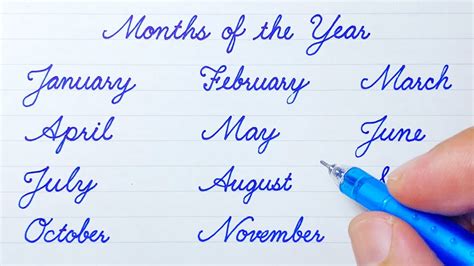 Months of the Year
January February March
April May June
July August
October November